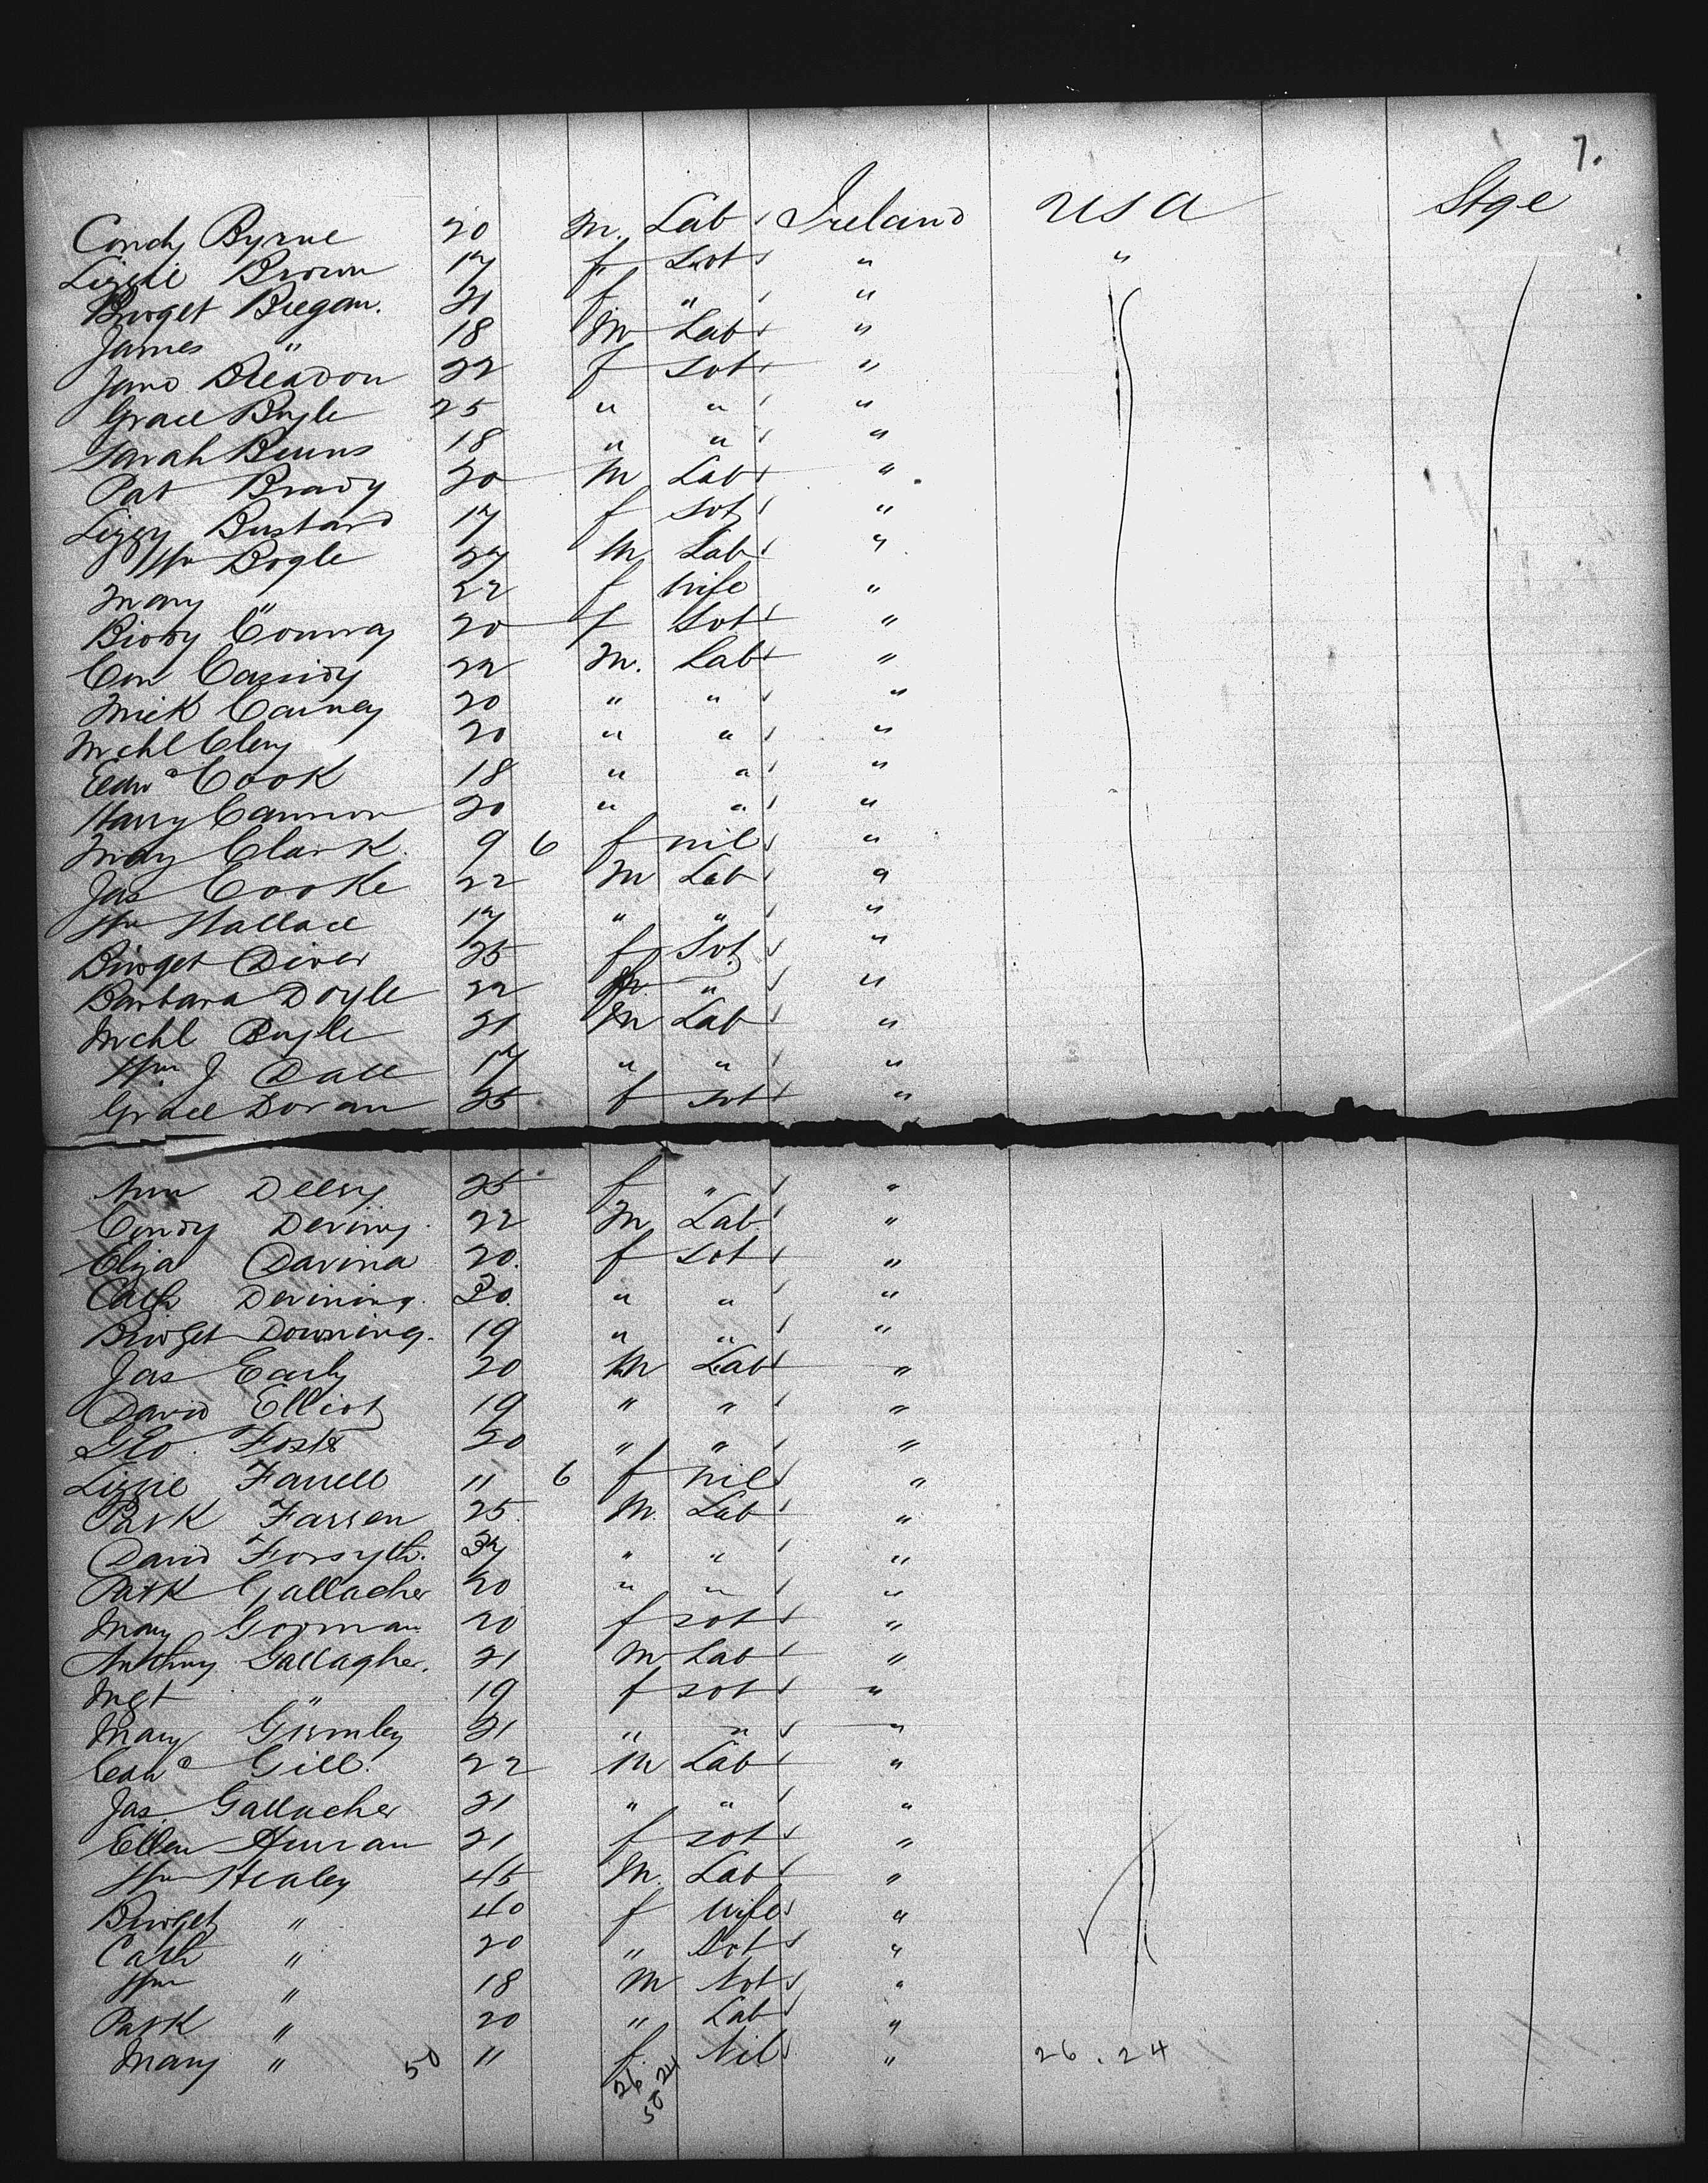 7.
Condy Byrne 20 M. Lab Ireland USA Stge
Lizzie Brown 17 f Svt " "
Bridget Bregan. 21 f " "
James " 18 M Lab "
Jane Breadon 22 f Svt "
Grace Boyle 25 " " "
Sarah Burns 18 " " "
Pat Brady 20 M Lab "
Lizzy Bustard 17 f Svt "
Wm Bogle 27 M Lab "
Mary " 22 f Wife "
Biddy Conway 20 f Svt "
Con Cassidy 22 M. Lab "
Mick Carney 20 " " "
Mchl Clery 20 " " "
Edwd Cook 18 " " "
Harry Cannon 20 " " "
May Clark. 9 6 f nil "
Jas Cooke 22 M Lab "
Wm Wallace 17 " " "
Bridget Diver 25 f Svt "
Barbara Doyle 22 " "
Mchl Boyle 21 M Lab "
Wm J Dall 17 " " "
Grace Doran 25 f Svt "
Ann 25 f " "
Condy 22 M Lab "
Eliza Davina 20. f Svt "
Cath Devining. 20. " " "
Bridget Downing. 19 " " "
Jas Early 20 M Lab "
David Elliot 19 " " "
Geo. Foster 20 " " "
Lizzie Farrell 11 6 f nil "
Patk Farren 25. M. Lab "
David Forsyth. 37 " " "
Patk Gallacher 20 " " "
Mary Gorman 20 f svt "
Anthony Gallagher. 21 M Lab "
Mgt " 19 f svt "
Mary Gormley 21 " " "
Edwd Gill. 22 M Lab "
Jas. Gallacher 21 " " "
Ellen 21 f svt "
Wm Healey 45 M. Lab "
Bridget " 40 f Wife "
Cath " 20 " Svt "
Wm " 18 M Svt "
Patk " 20 " Lab "
Mary " 50 11 f. Nil " 26.24
26 24
50